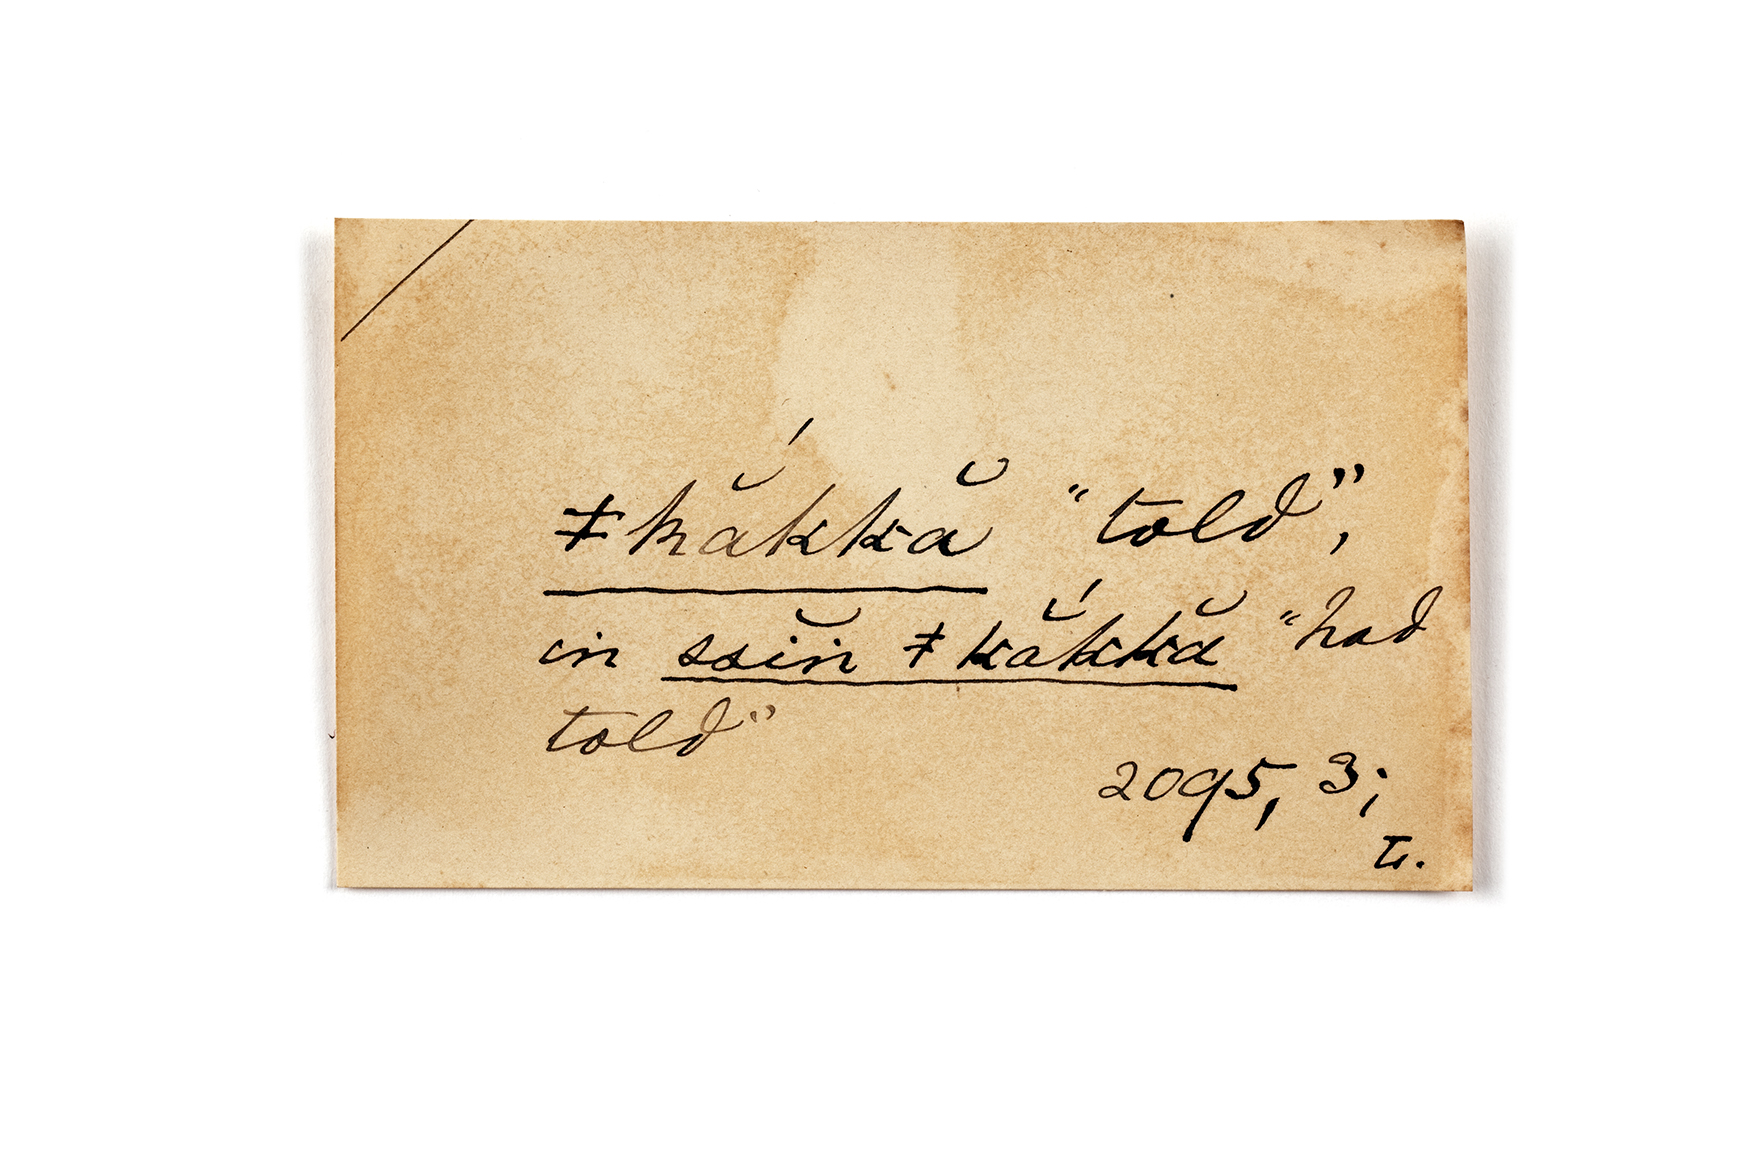 ǂkắkkă “told”,
in ssĭn ǂkắkkă “had
told”
2095, 3;
L.